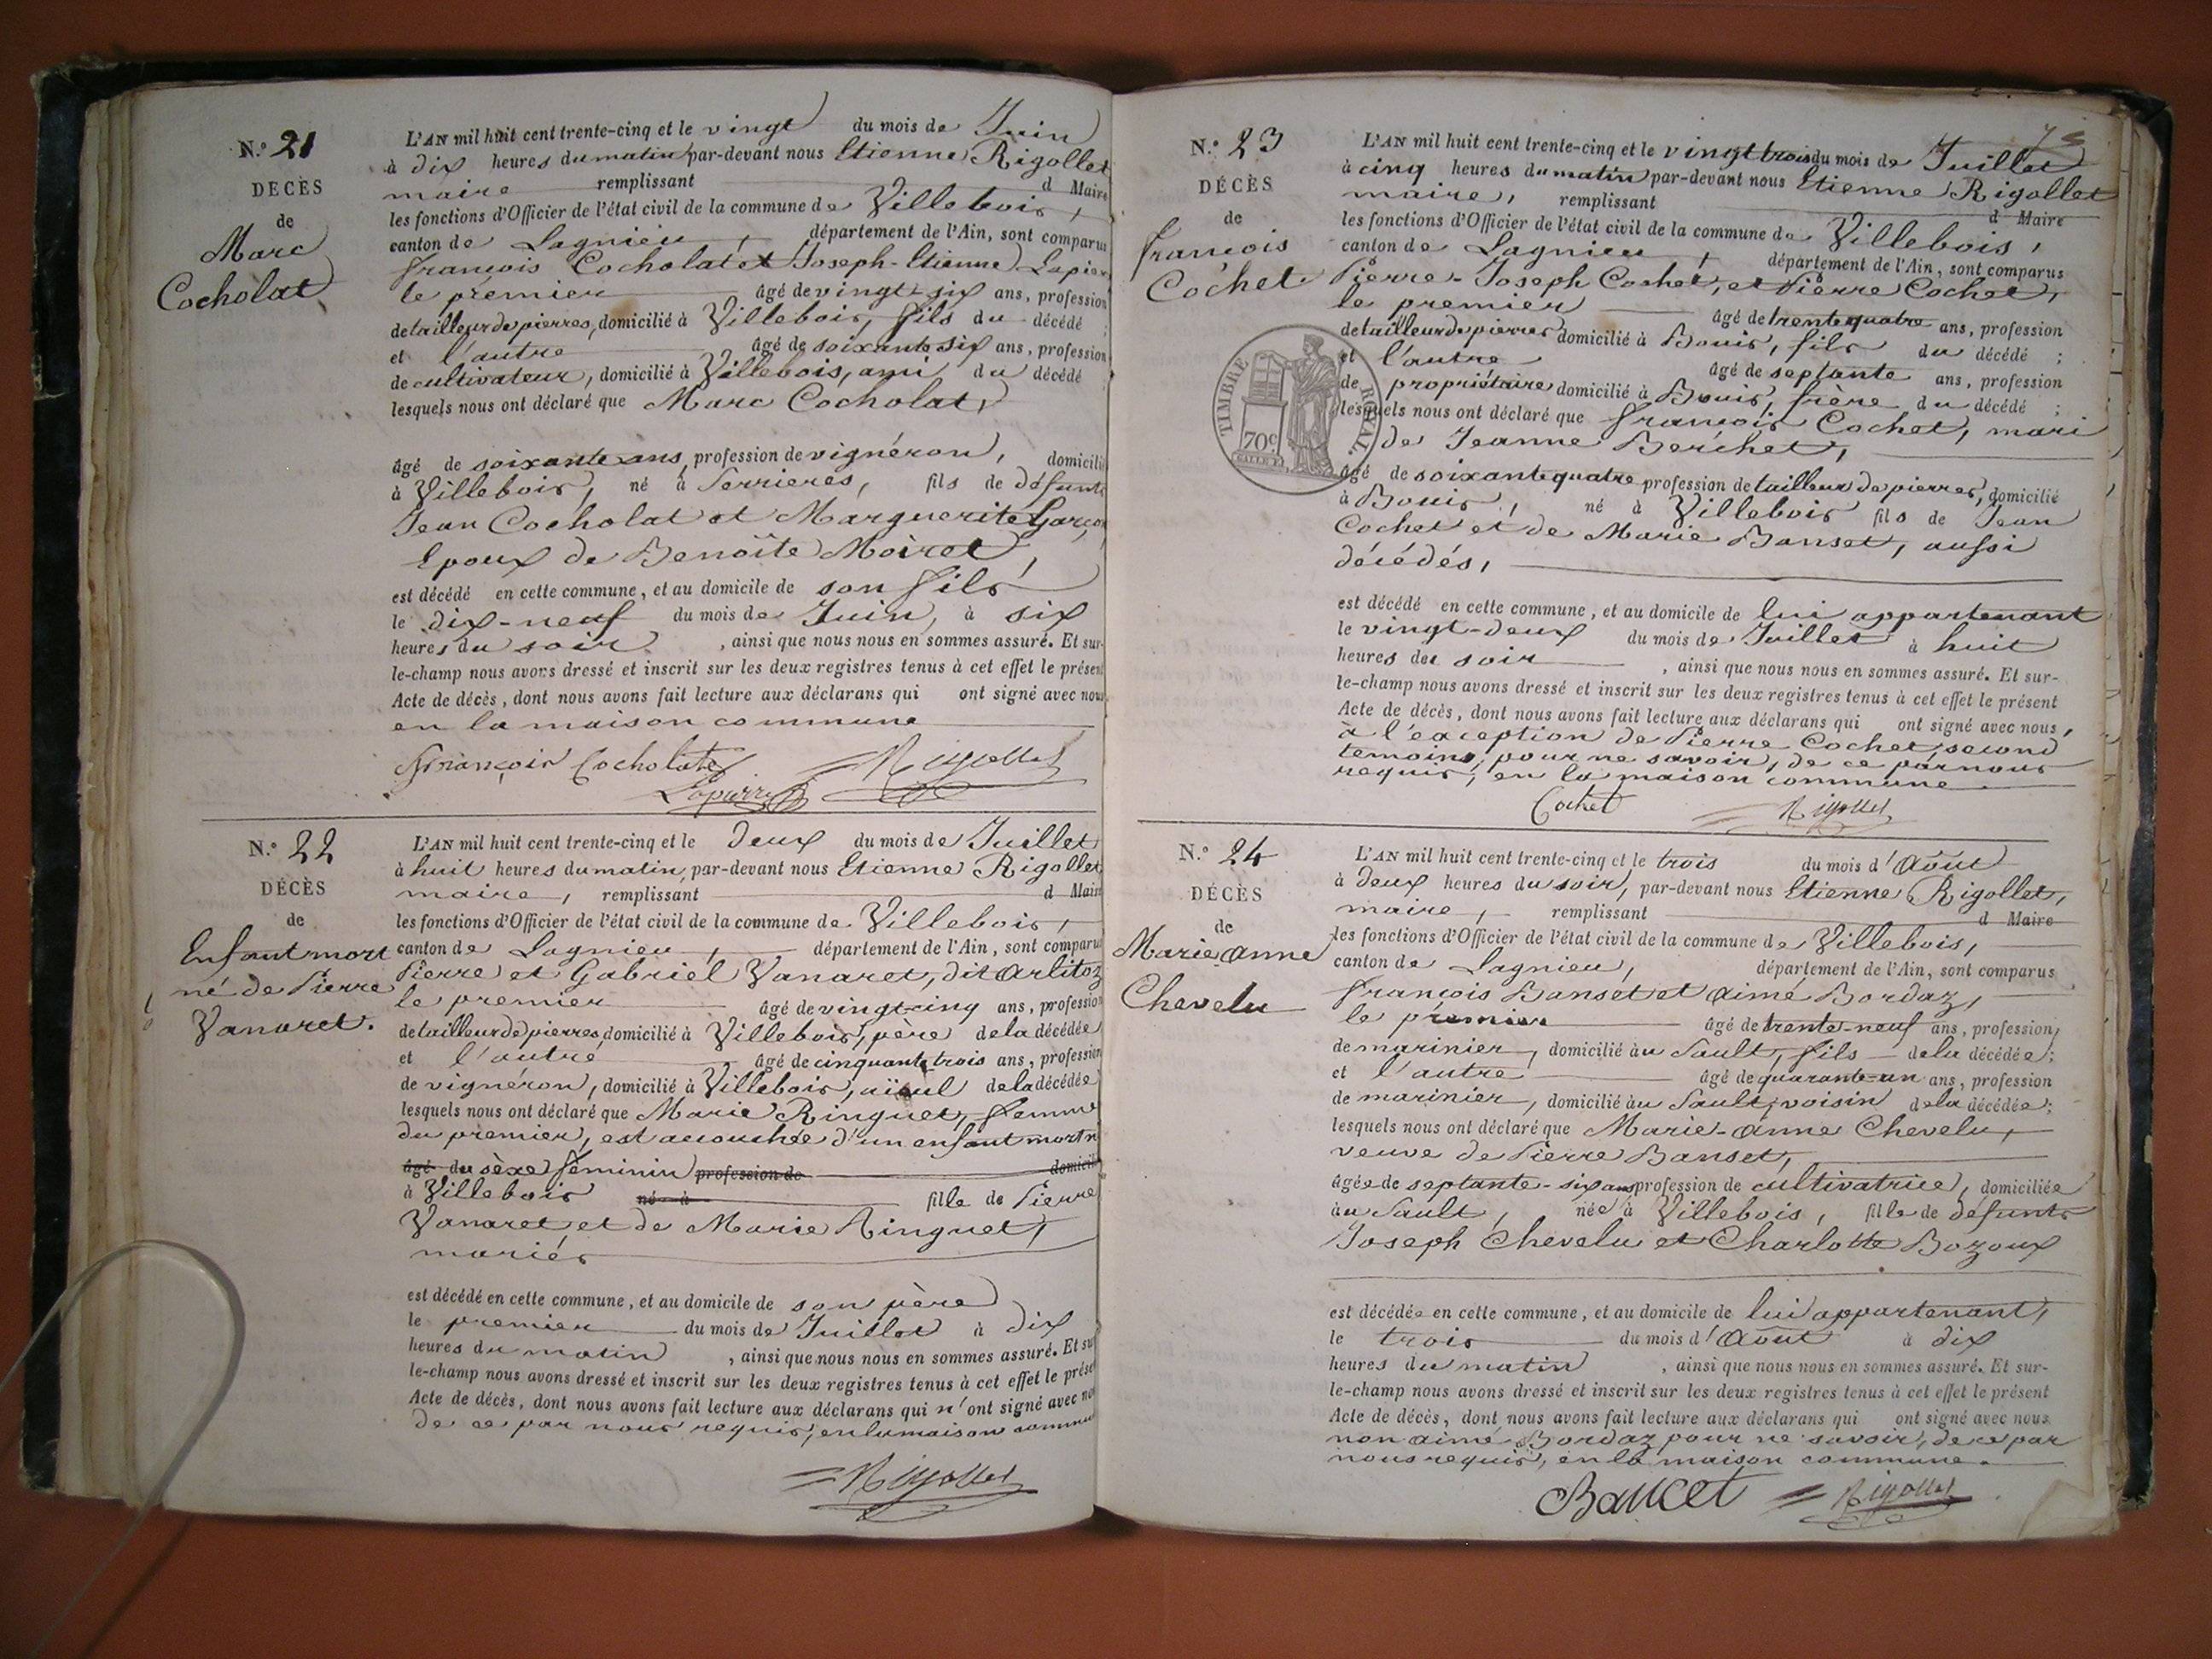 N.° 21
DÉCÈS
de
Marc
Cocholat
L'AN mil huit cent trente-cinq et le vingt du mois de Juin
à dix heures du matin par-devant nous Etienne Rigollet
maire remplissant d Maire
les fonctions d'Officier de l'état civil de la commune de Villebois,
canton de Lagnieu, département de l'Ain, sont comparus
françois Cocholat et Joseph-Etienne Lapier
le premier âgé de vingt-six ans, profession
de tailleur de pierres, domicilié à Villebois, fils du décédé ;
et l'autre âgé de soixante six ans, profession
de cultivateur, domicilié à Villebois, ami du décédé
lesquels nous ont déclaré que Marc Cocholat,
âgé de soixante ans, profession de vignéron, domicilié
à Villebois, né à Serrieres, fils de défunts
Jean Cocholat et Marguerite Garçon,
Epoux de Benoîte Moiret,
est décédé en cette commune, et au domicile de son fils
le dix-neuf du mois de Juin, à six
heures du soir, ainsi que nous nous en sommes assuré. Et sur-
le-champ nous avons dressé et inscrit sur les deux registres tenus à cet effet le présent
Acte de décès, dont nous avons fait lecture aux déclarans qui ont signé avec nous
en la maison commune
françois Cocholat Rigollet
Lapierre
N.° 22
DÉCÈS
de
Enfant mort
né de Pierre
Vanaret.
L'AN mil huit cent trente-cinq et le deux du mois de Juillet
à huit heures du matin, par-devant nous Etienne Rigollet
maire, remplissant d Maire
les fonctions d'Officier de l'état civil de la commune de Villebois,
canton de Lagnieu, département de l'Ain, sont comparus
Pierre et Gabriel Vanaret, dit Arlitoz
le premier âgé de vingt-cinq ans, profession
de tailleur de pierres, domicilié à Villebois, père de la décédée
et l'autre âgé de cinquante trois ans, profession
de vignéron, domicilié à Villebois, aïeul de la décédée
lesquels nous ont déclaré que Marie Ringuet, femme
du premier, est accouchée d'un enfant mort n
âgé du sèxe féminin profession de domicilié
à Villebois né à fille de Pierre
Vanaret et de Marie Ringuet,
mariés
est décédé en cette commune, et au domicile de son père
le premier du mois de Juillet à dix
heures du matin, ainsi que nous nous en sommes assuré. Et sur
le-champ nous avons dressé et inscrit sur les deux registres tenus à cet effet le présent
Acte de décès, dont nous avons fait lecture aux déclarans qui n'ont signé avec nous
de ce par nous requis, en la maison commune
Rigollet
75
N.° 23
DÉCÈS
de
françois
Cochet
L'AN mil huit cent trente-cinq et le vingt trois du mois de Juillet
à cinq heures du matin par-devant nous Etienne Rigollet
maire, remplissant d Maire
les fonctions d'Officier de l'état civil de la commune de Villebois,
canton de Lagnieu, département de l'Ain, sont comparus
Pierre-Joseph Cochet, et Pierre Cochet,
le premier âgé de trente quatre ans, profession
de tailleur de pierres domicilié à Bouis, fils du décédé ;
et l'autre âgé de septante ans, profession
de propriétaire domicilié à Bouis, frère du décédé ;
lesquels nous ont déclaré que françois Cochet, mari
de Jeanne Berchet,
TIMBRE ROYAL
70c
âgé de soixante quatre profession de tailleur de pierres, domicilié
à Bouis, né à Villebois fils de Jean
Cochet et de Marie Banset, aussi
décédés,
est décédé en cette commune, et au domicile de lui appartenant
le vingt-deux du mois de Juillet à huit
heures du soir, ainsi que nous nous en sommes assuré. Et sur-
le-champ nous avons dressé et inscrit sur les deux registres tenus à cet effet le présent
Acte de décès, dont nous avons fait lecture aux déclarans qui ont signé avec nous,
à l'exception de Pierre Cochet, second
témoins, pour ne savoir, de ce par nous
requis, en la maison commune
Cochet Rigollet
N.° 24
DÉCÈS
de
Marie anne
Chevelu
L'AN mil huit cent trente-cinq et le trois du mois d'Août
à deux heures du soir, par-devant nous Etienne Rigollet,
maire, remplissant d Maire
les fonctions d'Officier de l'état civil de la commune de Villebois,
canton de Lagnieu, département de l'Ain, sont comparus
françois Banset et aimé Bordaz,
le premier âgé de trente-neuf ans, profession
de marinier, domicilié au Sault, fils de la décédée ;
et l'autre âgé de quarante-un ans, profession
de marinier, domicilié au Sault, voisin de la décédée ;
lesquels nous ont déclaré que Marie-anne Chevelu,
veuve de Pierre Banset,
âgée de septante-six ans profession de cultivatrice, domiciliée
au Sault, née à Villebois, fille de défunts
Joseph Chevelu et Charlotte Bozoux
est décédée en cette commune, et au domicile de lui appartenant,
le trois du mois d'Août à dix
heures du matin, ainsi que nous nous en sommes assuré. Et sur-
le-champ nous avons dressé et inscrit sur les deux registres tenus à cet effet le présent
Acte de décès, dont nous avons fait lecture aux déclarans qui ont signé avec nous
non aimé Bordaz pour ne savoir, de ce par
nous requis, en la maison commune.
Bancet Rigollet